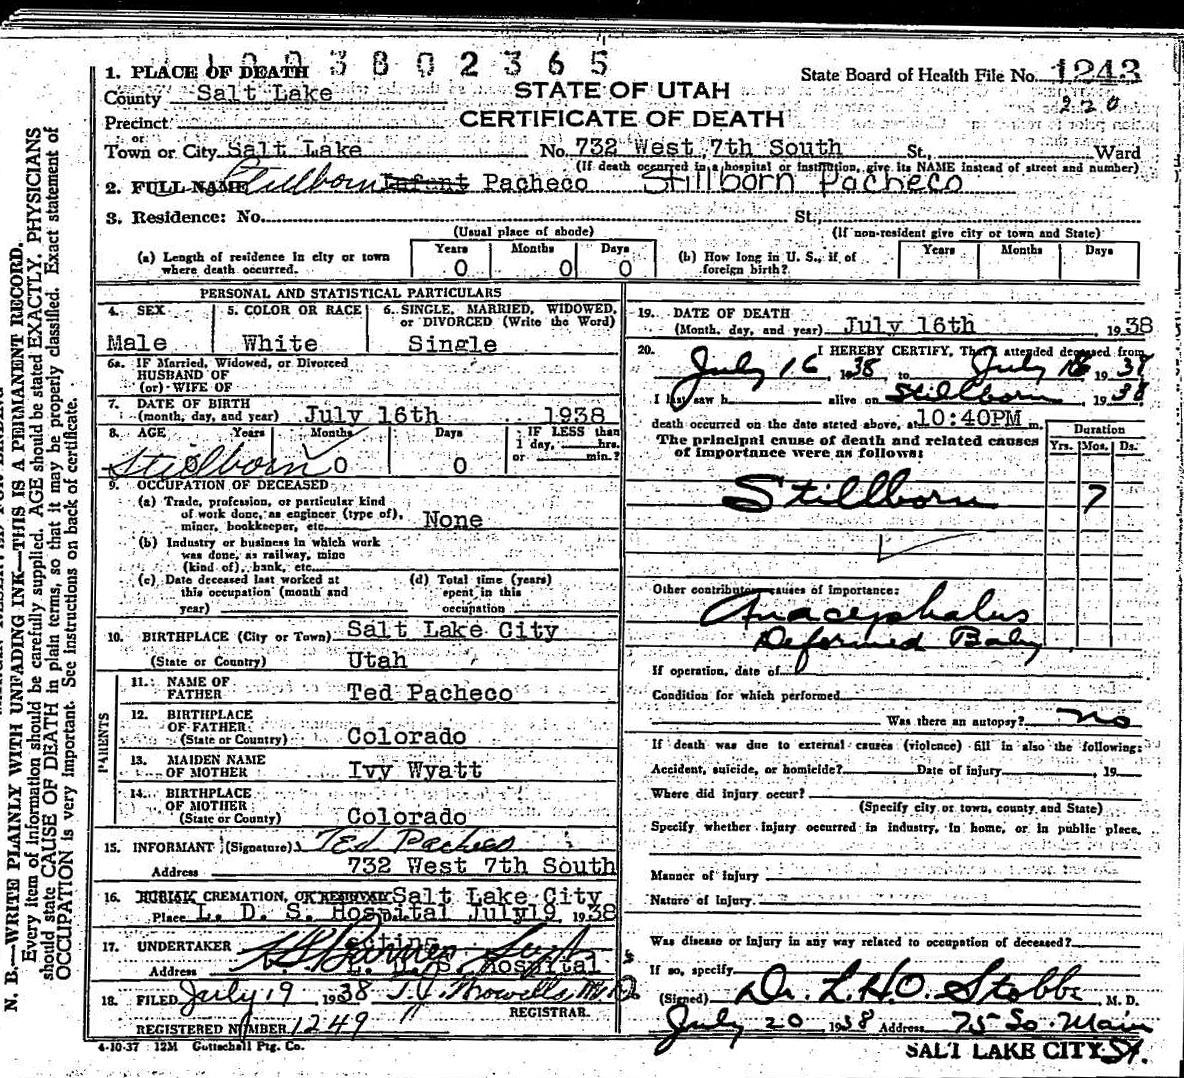 1003802365
1. PLACE OF DEATH
State Board of Health File No. 1243
County Salt Lake
STATE OF UTAH
220
Precinct
CERTIFICATE OF DEATH
or
Town or City Salt Lake No. 732 West 7th South St., Ward
(If death occurred in a hospital or institution, give its NAME instead of street and number)
2. FULL NAME Stillborn Infant Pacheco Stillborn Pacheco
3. Residence: No. St.,
(Usual place of abode) (If non-resident give city or town and State)
(a) Length of residence in city or town where death occurred. Years 0 Months 0 Days 0
(b) How long in U. S., if of foreign birth? Years Months Days
PERSONAL AND STATISTICAL PARTICULARS
4. SEX 5. COLOR OR RACE 6. SINGLE, MARRIED, WIDOWED,
or DIVORCED (Write the Word)
Male White Single
6a. IF Married, Widowed, or Divorced
HUSBAND OF
(or) WIFE OF
7. DATE OF BIRTH
(month, day, and year) July 16th 1938
8. AGE Years Months Days IF LESS than
1 day, hrs.
or min.?
Stillborn 0 0 0
9. OCCUPATION OF DECEASED
(a) Trade, profession, or particular kind
of work done, as engineer (type of),
miner, bookkeeper, etc. None
(b) Industry or business in which work
was done, as railway, mine
(kind of), bank, etc.
(c) Date deceased last worked at
this occupation (month and
year)
(d) Total time (years)
spent in this
occupation
10. BIRTHPLACE (City or Town) Salt Lake City
(State or Country) Utah
PARENTS
11. NAME OF
FATHER Ted Pacheco
12. BIRTHPLACE
OF FATHER
(State or Country) Colorado
13. MAIDEN NAME
OF MOTHER Ivy Wyatt
14. BIRTHPLACE
OF MOTHER
(State or Country) Colorado
15. INFORMANT (Signature) Ted Pacheco
Address 732 West 7th South
16. BURIAL CREMATION, OR REMOVAL Salt Lake City
Place L. D. S. Hospital July 19, 1938
17. UNDERTAKER
Address L. D. S. Hospital
18. FILED July 19 1938
REGISTRAR.
REGISTERED NUMBER 1249
4-10-37 12M Gottschall Ptg. Co.
19. DATE OF DEATH
(Month, day, and year) July 16th 1938
20. I HEREBY CERTIFY, That I attended deceased from
July 16, 1938 to July 16 1938
I last saw h alive on Stillborn 1938
death occurred on the date stated above, at 10:40PM m.
The principal cause of death and related causes
of importance were as follows:
Duration
Yrs. Mos. Ds.
Stillborn 7
Other contributory causes of importance:
Anacephalus
Deformed Baby
If operation, date of
Condition for which performed
Was there an autopsy? no
If death was due to external causes (violence) fill in also the following:
Accident, suicide, or homicide? Date of injury 19
Where did injury occur?
(Specify city or town, county and State)
Specify whether injury occurred in industry, in home, or in public place.
Manner of injury
Nature of injury
Was disease or injury in any way related to occupation of deceased?
If so, specify
(Signed) Dr. L.H.O. Stobbe M. D.
July 20 1938 Address 75 So. Main
SALT LAKE CITY St.
N. B.—WRITE PLAINLY WITH UNFADING INK—THIS IS A PERMANENT RECORD.
Every item of information should be carefully supplied. AGE should be stated EXACTLY. PHYSICIANS
should state CAUSE OF DEATH in plain terms, so that it may be properly classified. Exact statement of
OCCUPATION is very important. See instructions on back of certificate.